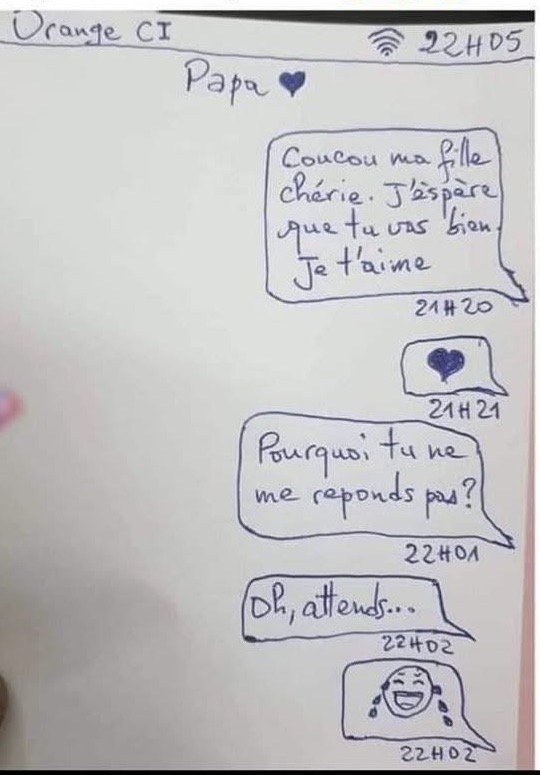 Orange CI 22H05
Papa
Coucou ma fille
chérie. J'éspère
que tu vas bien.
Je t'aime
21H20
21H21
Pourquoi tu ne
me reponds pas?
22H01
Oh, attends...
22H02
22H02